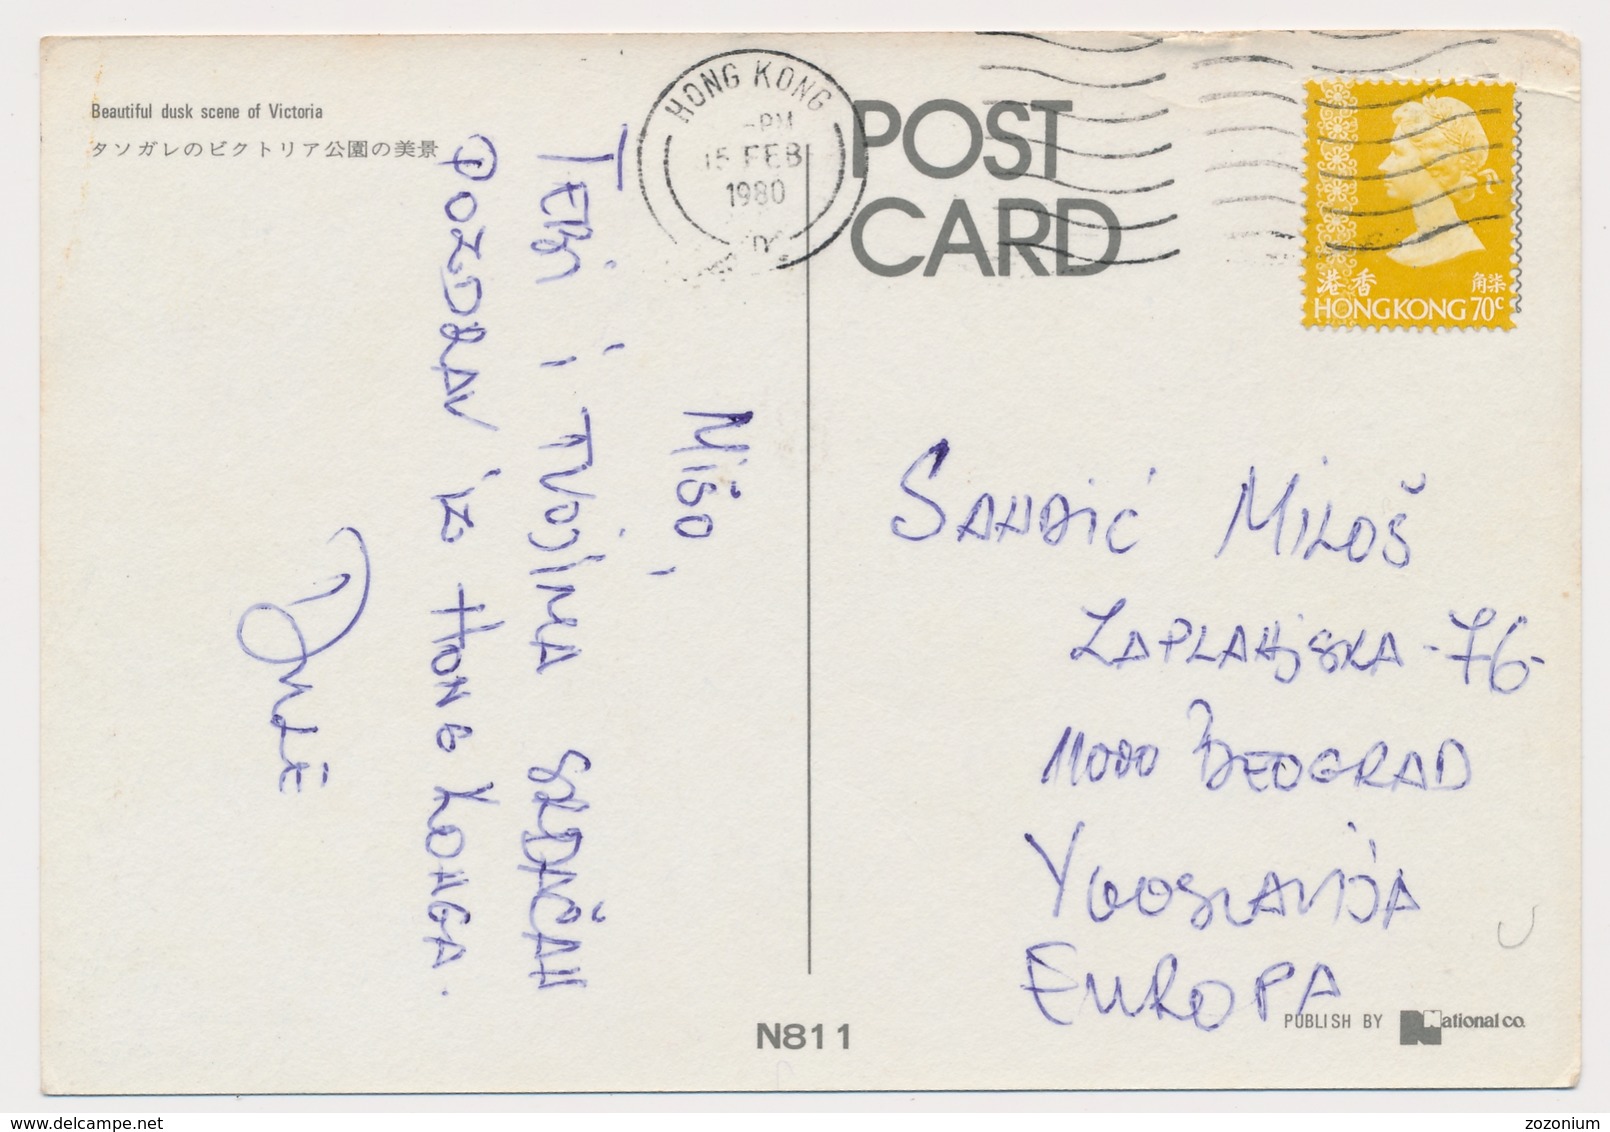 Beautiful dusk scene of Victoria
タソガレのビクトリア公園の美景
HONG KONG
-PM
15 FEB
1980
POST
CARD
港香 角柒
HONG KONG 70c
Mišo,
TEBI I TVOJIMA SRDAČAN
POZDRAV IZ HONG KONGA.
DULE
SANDIĆ MILOŠ
ZAPLANJSKA - 76-
11000 BEOGRAD
YUGOSLAVIJA
EUROPA
PUBLISH BY National co.
N811
delcampe.net
zozonium